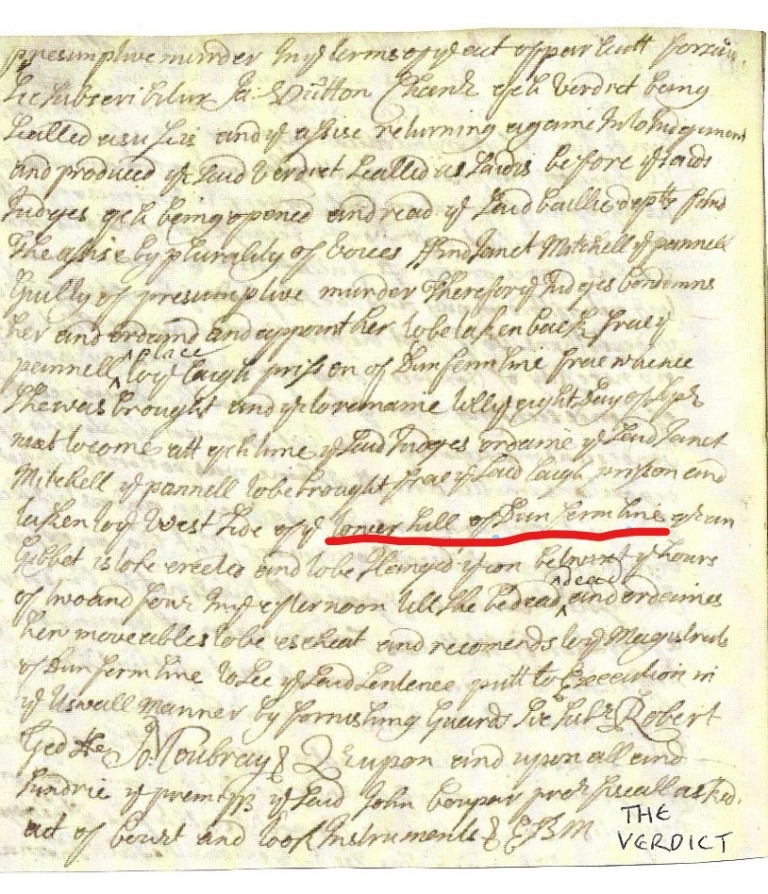 presumptive murder In yᵉ terms of yᵉ act of parliatt
sic subscribitur Ja: Dutton Chanlr qch verdict being
sealled as su sis and yᵉ assise returning againe Into Judgement
and produced yᵉ said verdict sealled as said is before yᵉ saids
Judges qch being opened and read yᵉ said baillie depts find
The assise by plurality of voices ffind Janet Mitchell yᵉ pannell
Guilty of presumptive murder Therefor yᵉ Judges condemns
her and ordaind and appoint her to be taken back frae yᵉ
pannell place to yᵉ laigh prison of Dunfermline frae whence
She was brought and yʳ to remaine till yᵉ eight day of
next to come att qch time yᵉ said Judges ordaine yᵉ said Janet
Mitchell yᵉ pannell to be brought frae yᵉ said laigh prison and
taken to yᵉ West side of yᵉ hill of Dunfermline qr an
Gibbet is to be erected and to be Hanged yron betwixt yᵉ hours
of two and four In yᵉ efternoon till she be dead dead and ordaines
her moveables to be escheat and recomends to yᵉ Magistrats
of Dunfermline to see yᵉ said sentence putt to Execution in
yᵉ Usuall manner by fornishing Guards Sic subr Robert
Ged Jo: Moubray & Qrupon and upon all and
sundrie yᵉ premiss yᵉ said John Coupar pror fiscall asked
act of court and took Instruments &
THE
VERDICT